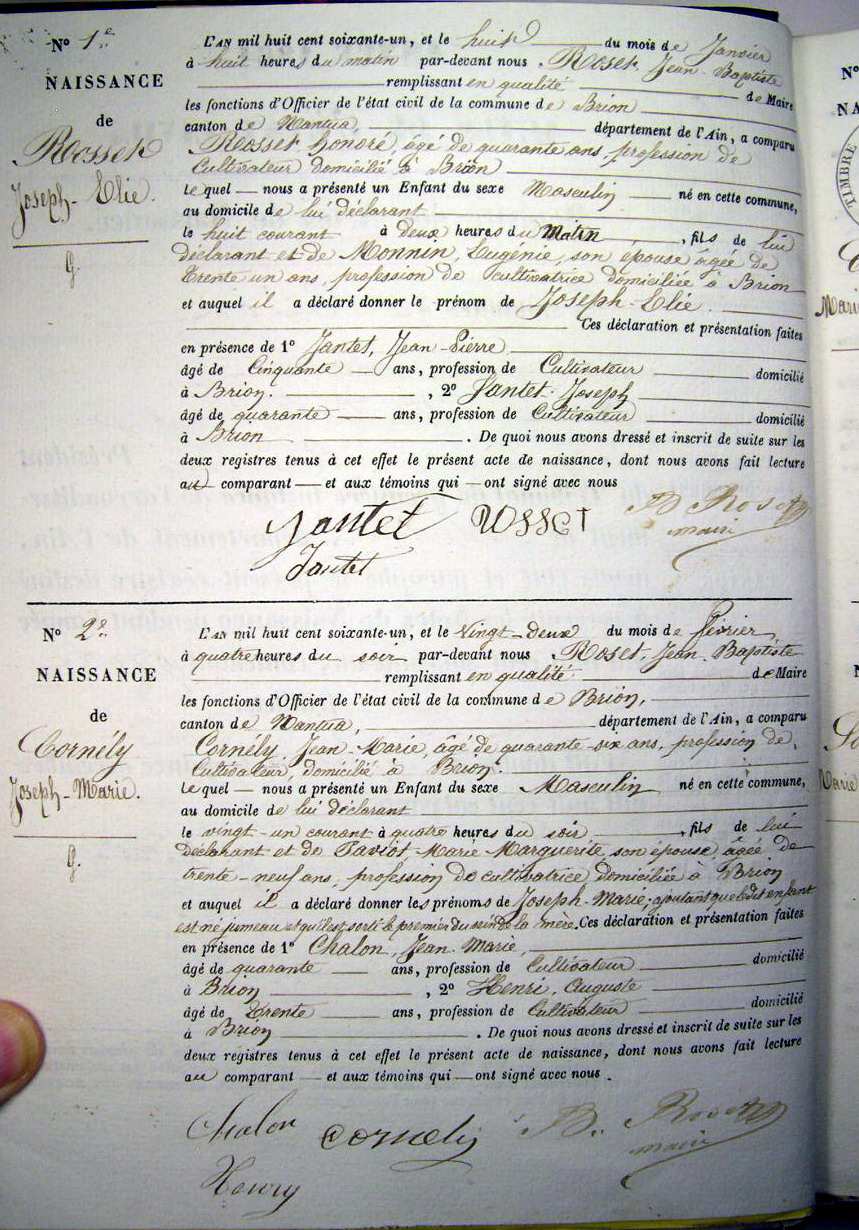 N° 1e
NAISSANCE
de
Rosset
Joseph-Elie.
g.
L'AN mil huit cent soixante-un, et le huit du mois de Janvier
à huit heures du matin par-devant nous Roset, Jean-Baptiste
remplissant en qualité de Maire
les fonctions d'Officier de l'état civil de la commune de Brion
canton de Nantua, département de l'Ain, a comparu
Rosset honoré, âgé de quarante ans, profession de
Cultivateur domicilié à Brion
lequel nous a présenté un Enfant du sexe Masculin né en cette commune,
au domicile de lui déclarant
le huit courant à deux heures du Matin, fils de lui
déclarant et de Monnin, Eugénie, son épouse âgée de
trente un ans, profession de cultivatrice domiciliée à Brion
et auquel il a déclaré donner le prénom de Joseph-Elie.
Ces déclaration et présentation faites
en présence de 1° Jantet, Jean-Pierre
âgé de Cinquante ans, profession de Cultivateur domicilié
à Brion. , 2° Jantet Joseph
âgé de quarante ans, profession de Cultivateur domicilié
à Brion . De quoi nous avons dressé et inscrit de suite sur les
deux registres tenus à cet effet le présent acte de naissance, dont nous avons fait lecture
au comparant et aux témoins qui ont signé avec nous
Jantet ROSSET B. Roset
maire
Jantet
N° 2e
NAISSANCE
de
Cornély
Joseph-Marie.
g.
L'AN mil huit cent soixante-un, et le Vingt-Deux du mois de février,
à quatre heures du soir par-devant nous Roset, Jean-Baptiste
remplissant en qualité de Maire
les fonctions d'Officier de l'état civil de la commune de Brion,
canton de Nantua, département de l'Ain, a comparu
Cornély Jean-Marie, âgé de quarante-six ans, profession de
Cultivateur, domicilié à Brion.
lequel nous a présenté un Enfant du sexe Masculin né en cette commune,
au domicile de lui déclarant
le vingt-un courant à quatre heures du soir , fils de lui
déclarant et de Paviot, Marie Marguerite, son épouse, âgée de
trente-neuf ans, profession de cultivatrice domiciliée à Brion
et auquel il a déclaré donner les prénoms de Joseph-Marie; ajoutant que le dit enfant
est né jumeau et qu'il est sorti le premier du sein de la mère. Ces déclaration et présentation faites
en présence de 1° Chalon, Jean-Marie,
âgé de quarante ans, profession de Cultivateur domicilié
à Brion , 2° Henri, Auguste
âgé de trente ans, profession de Cultivateur domicilié
à Brion . De quoi nous avons dressé et inscrit de suite sur les
deux registres tenus à cet effet le présent acte de naissance, dont nous avons fait lecture
au comparant et aux témoins qui ont signé avec nous.
Chalon Cornely B. Roset
maire
Henry